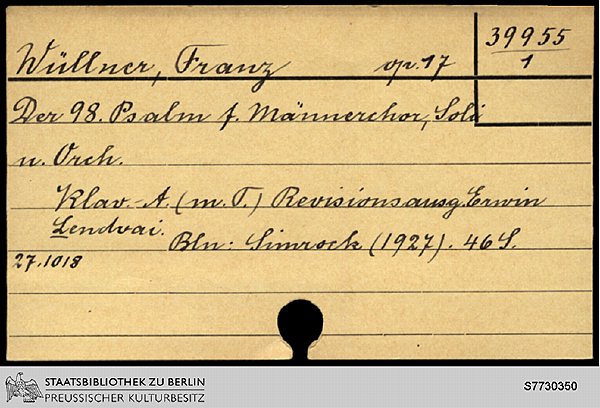 Wüllner, Franz op. 17
39955
1
Der 98. Psalm f. Männerchor, Soli
u. Orch.
Klav.-A. (m. T.) Revisionsausg. Erwin
Lendvai.
Bln: Simrock (1927). 46 S.
27.1018
STAATSBIBLIOTHEK ZU BERLIN
PREUSSISCHER KULTURBESITZ
S7730350